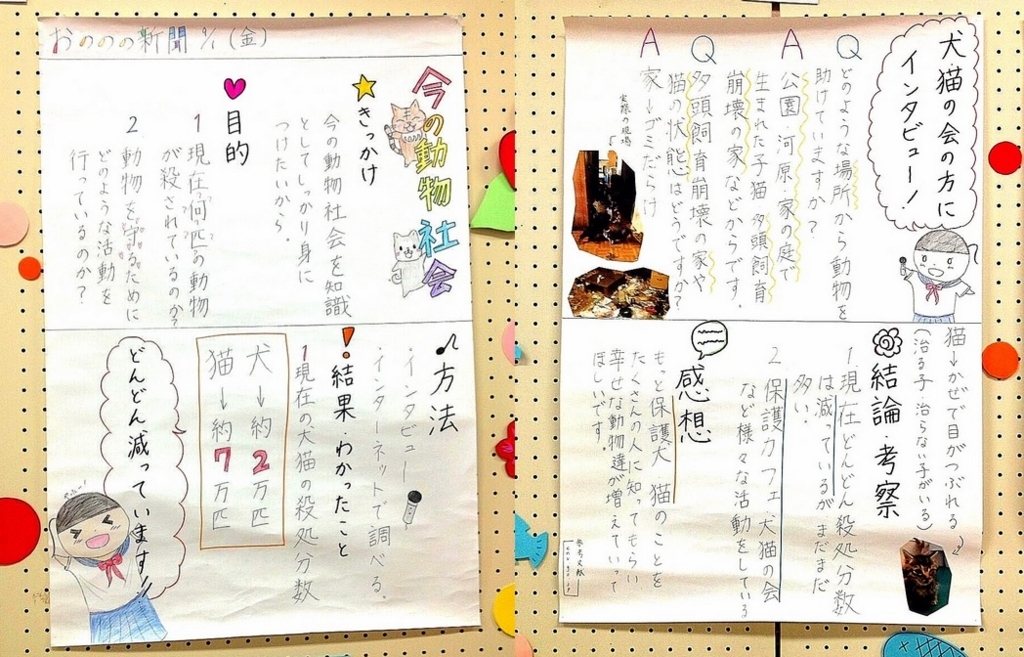 おののの新聞 9/1(金)
今の動物社会
きっかけ
今の動物社会を知識
としてしっかり身に
つけたいから。
目的
1 現在何匹の動物
が殺されているのか?
2 動物を守るために
どのような活動を
行っているのか?
方法
・インタビュー
・インターネットで調べる。
結果・わかったこと
1 現在の犬猫の殺処分数
犬→約2万匹
猫→約7万匹
どんどん減っています!!
犬・猫の会の方に
インタビュー!
Q どのような場所から動物を
助けていますか?
A 公園・河原・家の庭で
生まれた子猫 多頭飼育
崩壊の家などからです。
Q 多頭飼育崩壊の家や
猫の状態はどうですか?
A 家→ゴミだらけ
実際の現場
猫→かぜで目がつぶれる
(治る子・治らない子がいる)
結論・考察
1 現在どんどん殺処分数
は減っているがまだまだ
多い.
2 保護カフェ、犬猫の会
など様々な活動をしている
感想
もっと保護犬 猫のことを
たくさんの人に知ってもらい
幸せな動物達が増えていって
ほしいです。
参考文献